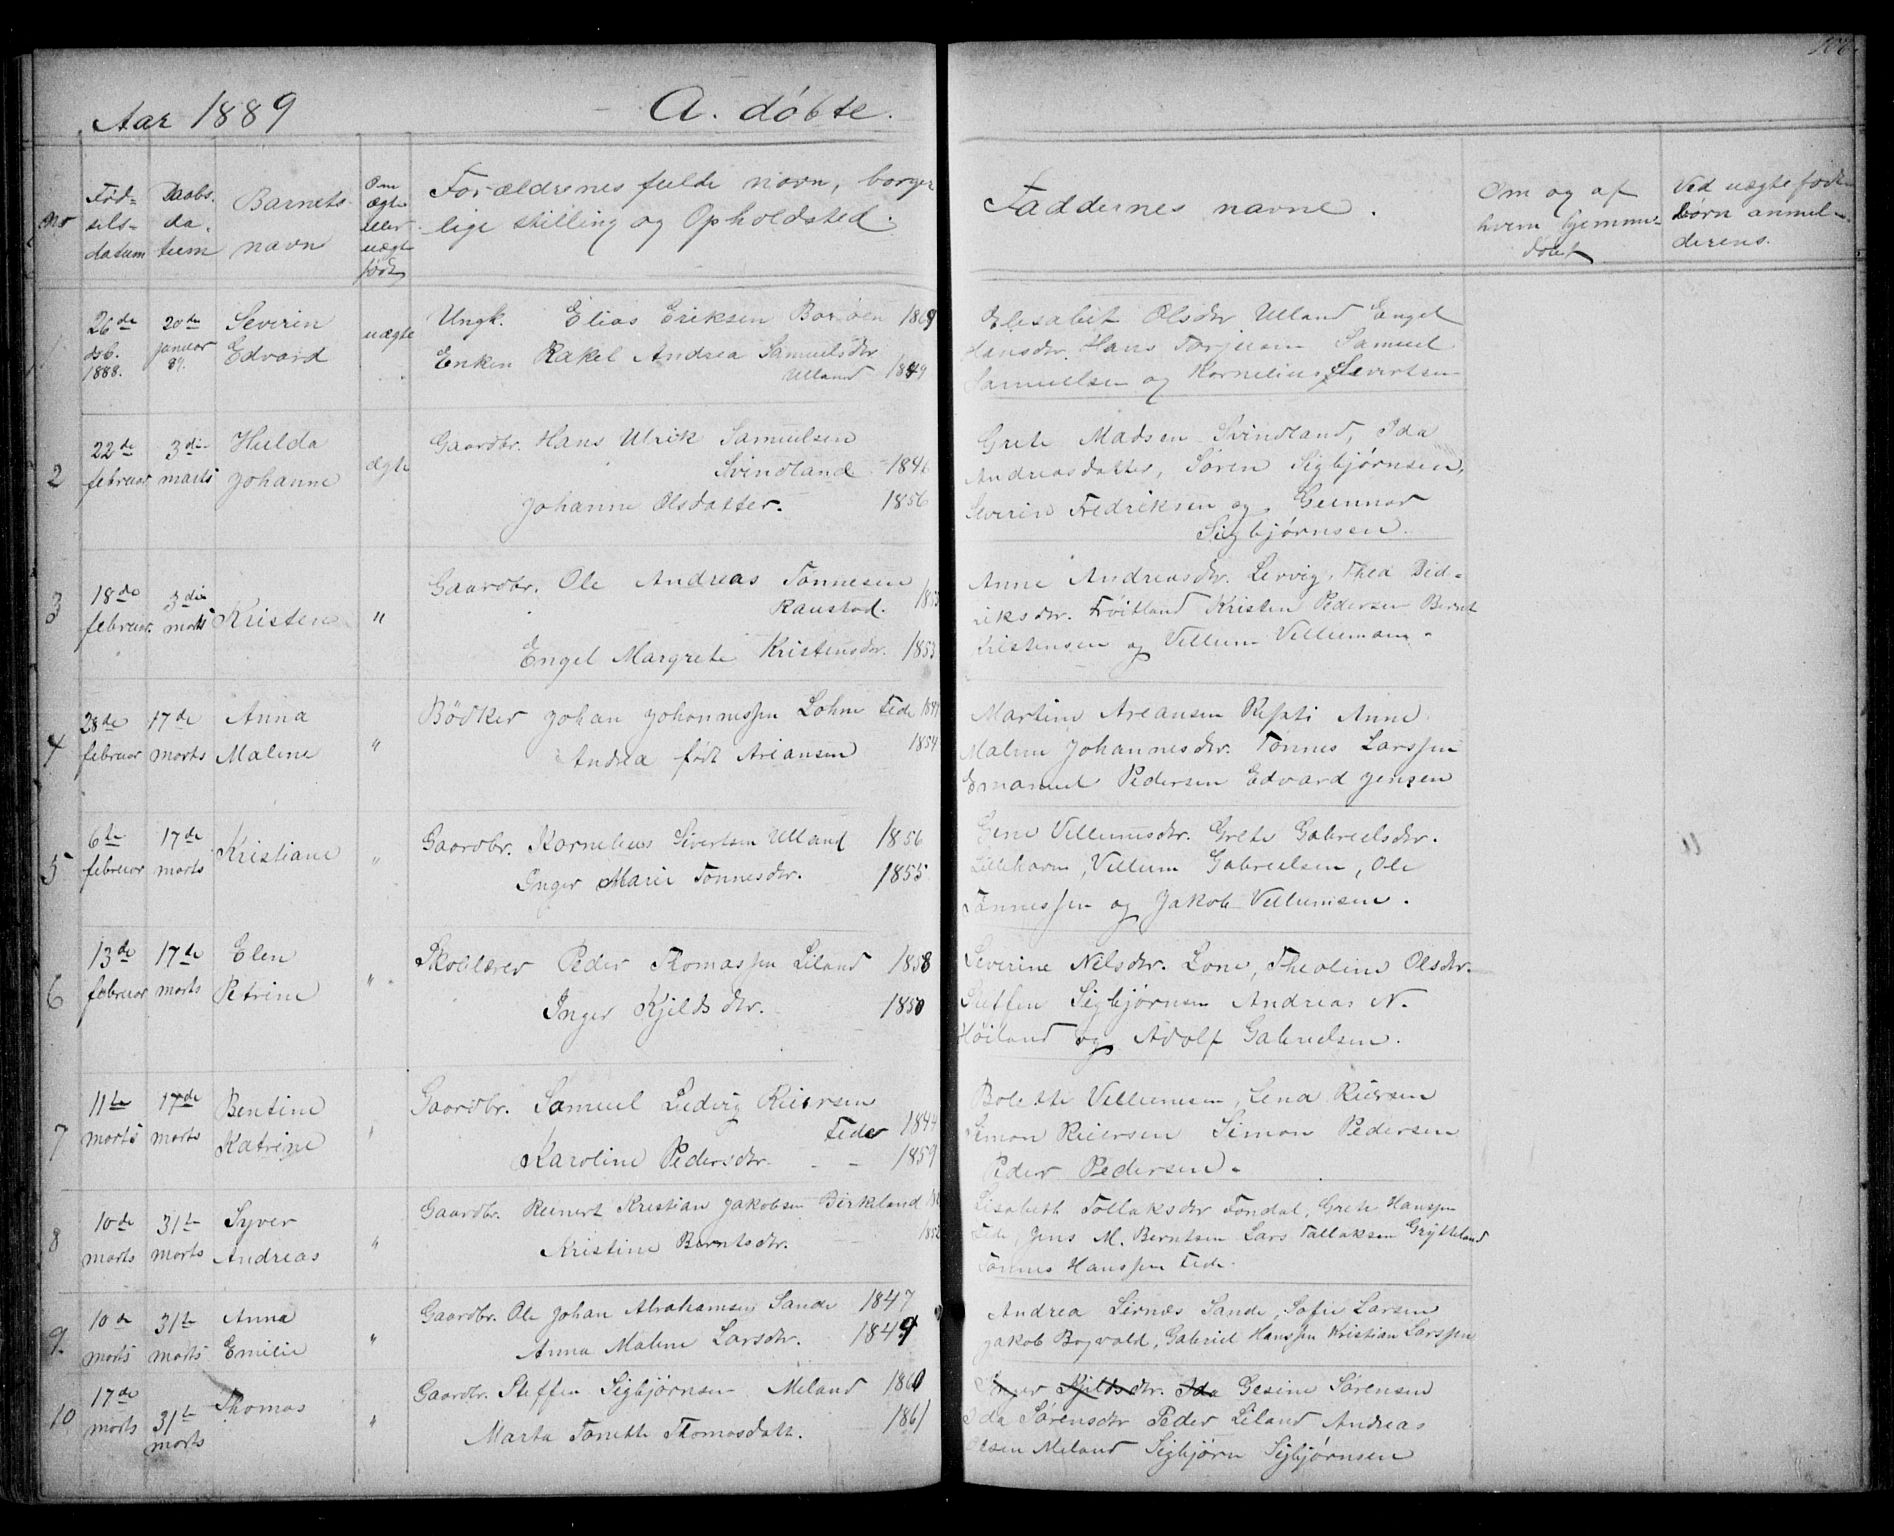 Aar 1889
A. døbte.
No
Fød-
sels-
datum
Daabs-
da-
tum
Barnets
navn
Om
ægte
eller
uægte
født
Forældrenes fulde navn, borger
lige stilling og Opholdsted.
Faddernes navne.
Om og af
hvem hjemme-
døbt
Ved uægte fødte
børn anmel-
derens.
1
26de
dsb.
1888.
20de
januar
89.
Severin
Edvard
uægte
Ungk. Elias Eriksen Borøen
Enken Rakel Andrea Samuelsdtr.
Ulland 1849
Elisabet Olsdtr Ulland Engel
Hansdtr. Hans Torjusen Samuel
Samuelsen og Kornelius Sivertsen
2
22de
februar
3die
marts
Hulda
Johanne
ægte
Gaardbr. Hans Ulrik Samuelsen
Svindland 1846
Johanne Olsdatter. 1856
Grete Madsen Svindland, Ida
Andreasdatter, Søren Sigbjørnsen,
Severin Fredriksen og Gunnar
Sigbjørnsen.
3
18de
februar.
3die
marts
Kristen
"
Gaardbr. Ole Andreas Tønnesen
Raustad.
Engel Margrete Kristensdtr. 1853
Anne Andreasdtr. Lervig, Thea Did-
riksdtr. Frøitland Kristen Pedersen Bernt
Kristensen og Villum Villumsen.
4
28de
februar
17de
marts
Anna
Maline
"
Bödker Johan Johannessen Lohne Fede
Andrea født Areansen 1854
Martine Areansen Anne
Maline Johannesdtr. Tønnes Larssen
Emanuel Pedersen Edvard Jensen
5
6te
februar
17de
marts
Kristiane
"
Gaardbr. Kornelius Sivertsen Ulland 1856
Inger Marie Tønnesdtr. 1855
Gene Villumsdtr. Grete Gabrielsdtr.
Villum Gabrielsen, Ole
Tønnessen og Jakob Villumsen.
6
13de
februar
17de
marts
Elen
Petrine
"
Skolelærer Peder Thomassen Liland 1858
Inger Kjeldsdtr. 1850
Severine Nilsdtr. Lone, Theoline Olsdtr.
Steffen Sigbjørnsen Andreas N.
Høiland og Adolf Gabrielsen.
7
11te
marts
17de
marts
Bentine
Katrine
"
Gaardbr. Samuel Ludvig Reiersen
Fede 1844
Karoline Pedersdtr. - - 1859
Bolette Villumsen, Lena Reiersen
Simon Reiersen Simon Pedersen
Peder Pedersen.
8
10de
marts
31te
marts
Syver
Andreas
"
Gaardbr. Reinert Kristian Jakobsen Birkeland
Kristine Berntsdtr.
Lisabeth Tollaksdtr Fondal, Grete Hanssen
Fede, Jens M. Berntsen Lars Tallaksen Grytteland
Tønnes Hanssen Fede.
9
10de
marts
31te
marts
Anna
Emilie
"
Gaardbr. Ole Johan Abrahamsen Sande 1847
Anna Maline Larsdtr. 1849
Andrea Sande, Sofie Larsen
Jakob Bogvald, Gabriel Hanssen Kristian Larssen
10
17de
marts
31te
marts
Thomas
"
Gaardbr. Steffen Sigbjørnsen Meland 1860
Marta Tonette Thomasdatt. 1861
Inger Kjeldsdtr. Ida Gesine Sørensen
Ida Sørensdtr Peder Liland Andreas
Olsen Meland Sigbjørn Sigbjørnsen